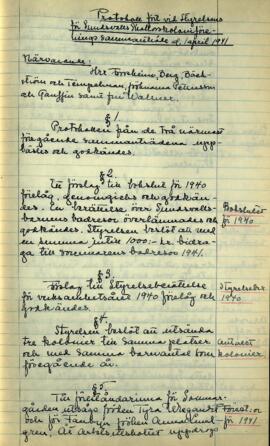 Protokoll fört vid Styrelsens
för Sundsvalls Skollovskoloniföre-
nings sammanträde d. 1 april 1941
Närvarande:
Hrr Forsheim, Berg, Bäck-
ström och Tempelman, fröknarna
och samt fru Walner.
§ 1.
Protokollen från de två närmast
föregående sammanträdena upp-
lästes och godkändes.
§ 2.
Till förslag till bokslut för 1940
förelåg, genomgicks och godkän-
des. En berättelse över Sundsvalls-
barnens badresor överlämnades och
godkändes. Styrelsen beslöt att med
en summa intill 1000:- kr. bidra-
ga till sommarens badresor 1941.
Bokslutet
för 1940
§ 3.
Förslag till Styrelseberättelse
för verksamhetsåret 1940 förelåg och
godkändes.
Styrelseber.
1940
§ 4.
Styrelsen beslöt att utsända
tre kolonier till samma platser
och med samma barnantal som
föregående år.
Antalet
kolonier
§ 5.
Till föreståndarinna för Sommar-
gården utsågs fröken Tyra Wiegandt
och för Fanbyn fröken
gren. At arbetsutskottet uppdrogs
Förest.
för 1941